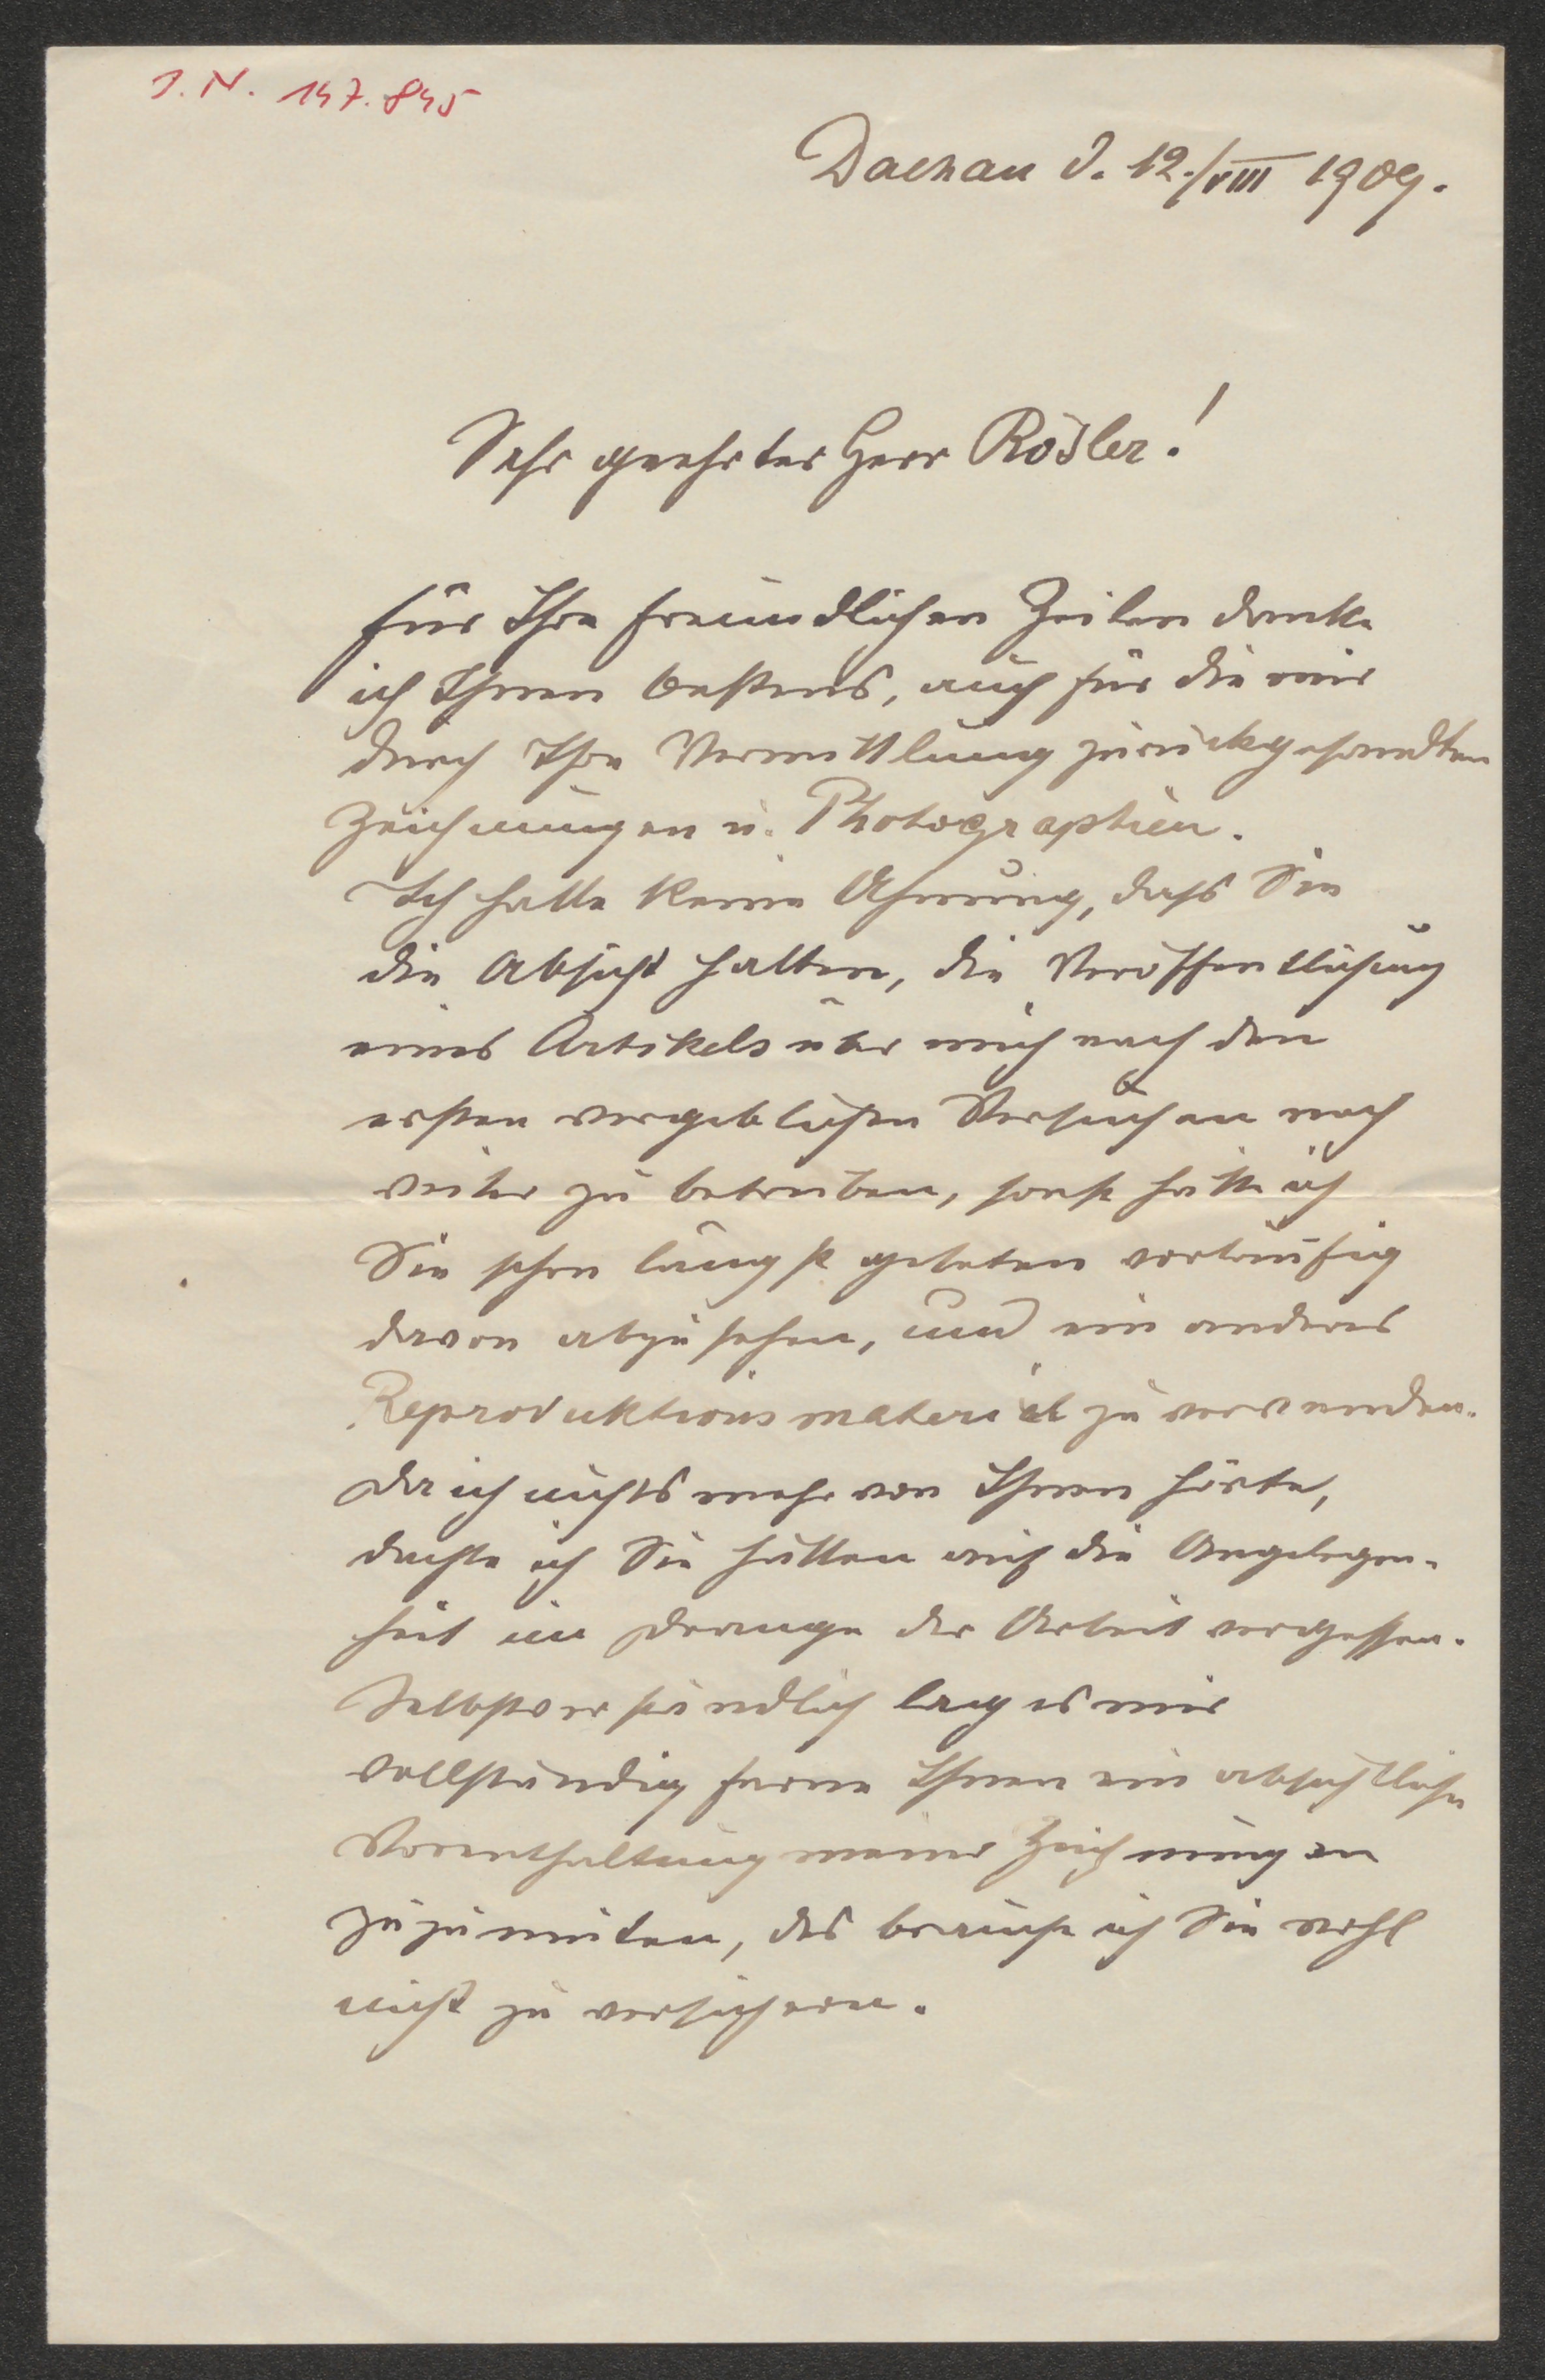 J. N. 147.845
Dachau d. 12./VIII 1909.
Sehr geehrter Herr Rösler!
für Ihre freundlichen Zeilen danke
ich Ihnen bestens, auch für die mir
durch Ihre Vermittlung zurückgesandten
Zeichnungen u. Photographien.
Ich hatte keine Ahnung, dass Sie
die Absicht hatten, die Veröffentlichung
eines Artikels über mich nach den
ersten vergeblichen Versuchen noch
weiter zu betreiben, sonst hätte ich
Sie schon längst gebeten vorläufig
davon abzusehen, und ein anderes
Reproduktionsmaterial zu verwenden.
Da ich nichts mehr von Ihnen hörte,
dachte ich Sie hätten auf die Angelegen-
heit im Drange der Arbeit vergessen.
Selbstverständlich lag es mir
vollständig ferne Ihnen ein absichtliche
Vorenthaltung meiner Zeichnungen
zuzumuten, des brauche ich Sie wohl
nicht zu versichern.